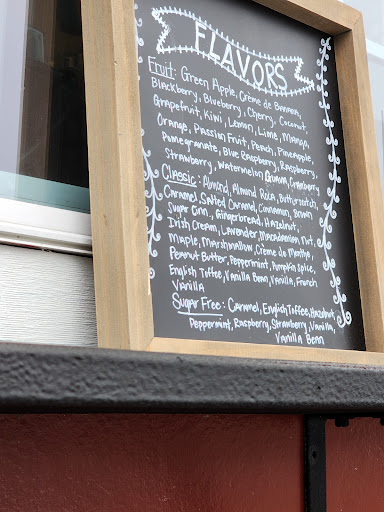 FLAVORS
Fruit: Green Apple, Crème de Banana,
Blackberry, Blueberry, Cherry, Coconut,
Grapefruit, Kiwi, Lemon, Lime, Mango,
Orange, Passion Fruit, Peach, Pineapple,
Pomegranate, Blue Raspberry, Raspberry,
Strawberry, Watermelon, Cranberry
Classic: Almond, Almond Roca, Butterscotch,
Caramel, Salted Caramel, Cinnamon, Brown
Sugar Cinn., Gingerbread, Hazelnut,
Irish Cream, Lavender, Macadamian Nut,
Maple, Marshmallow, Crème de Menthe,
Peanut Butter, Peppermint, Pumpkin Spice,
English Toffee, Vanilla Bean, Vanilla, French
Vanilla
Sugar Free: Caramel, English Toffee, Hazelnut,
Peppermint, Raspberry, Strawberry, Vanilla,
Vanilla Bean